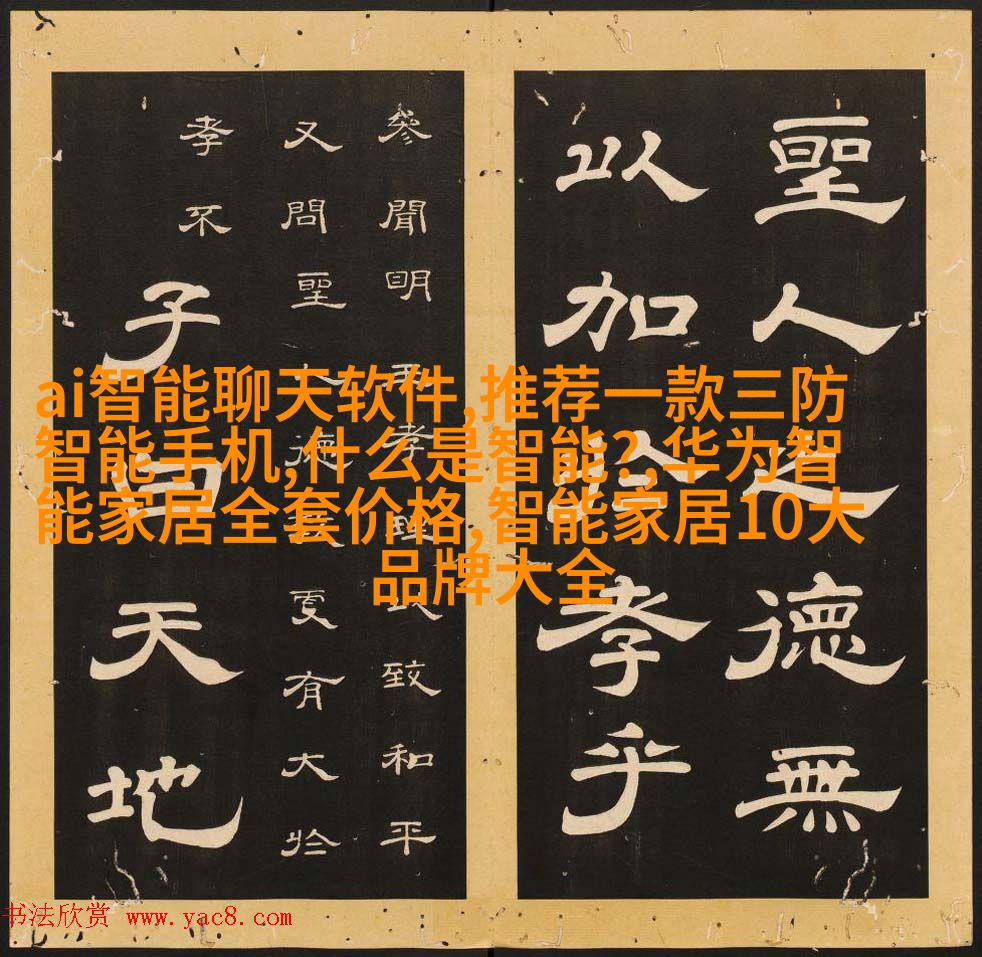 聖人之德無
以加於孝乎
參聞明王孝理以致和平
又問聖人德教更有大於
孝不
子曰天地
ai智能聊天软件,推荐一款三防
智能手机,什么是智能?,华为智
能家居全套价格,智能家居10大
品牌大全
书法欣赏 www.yac8.com